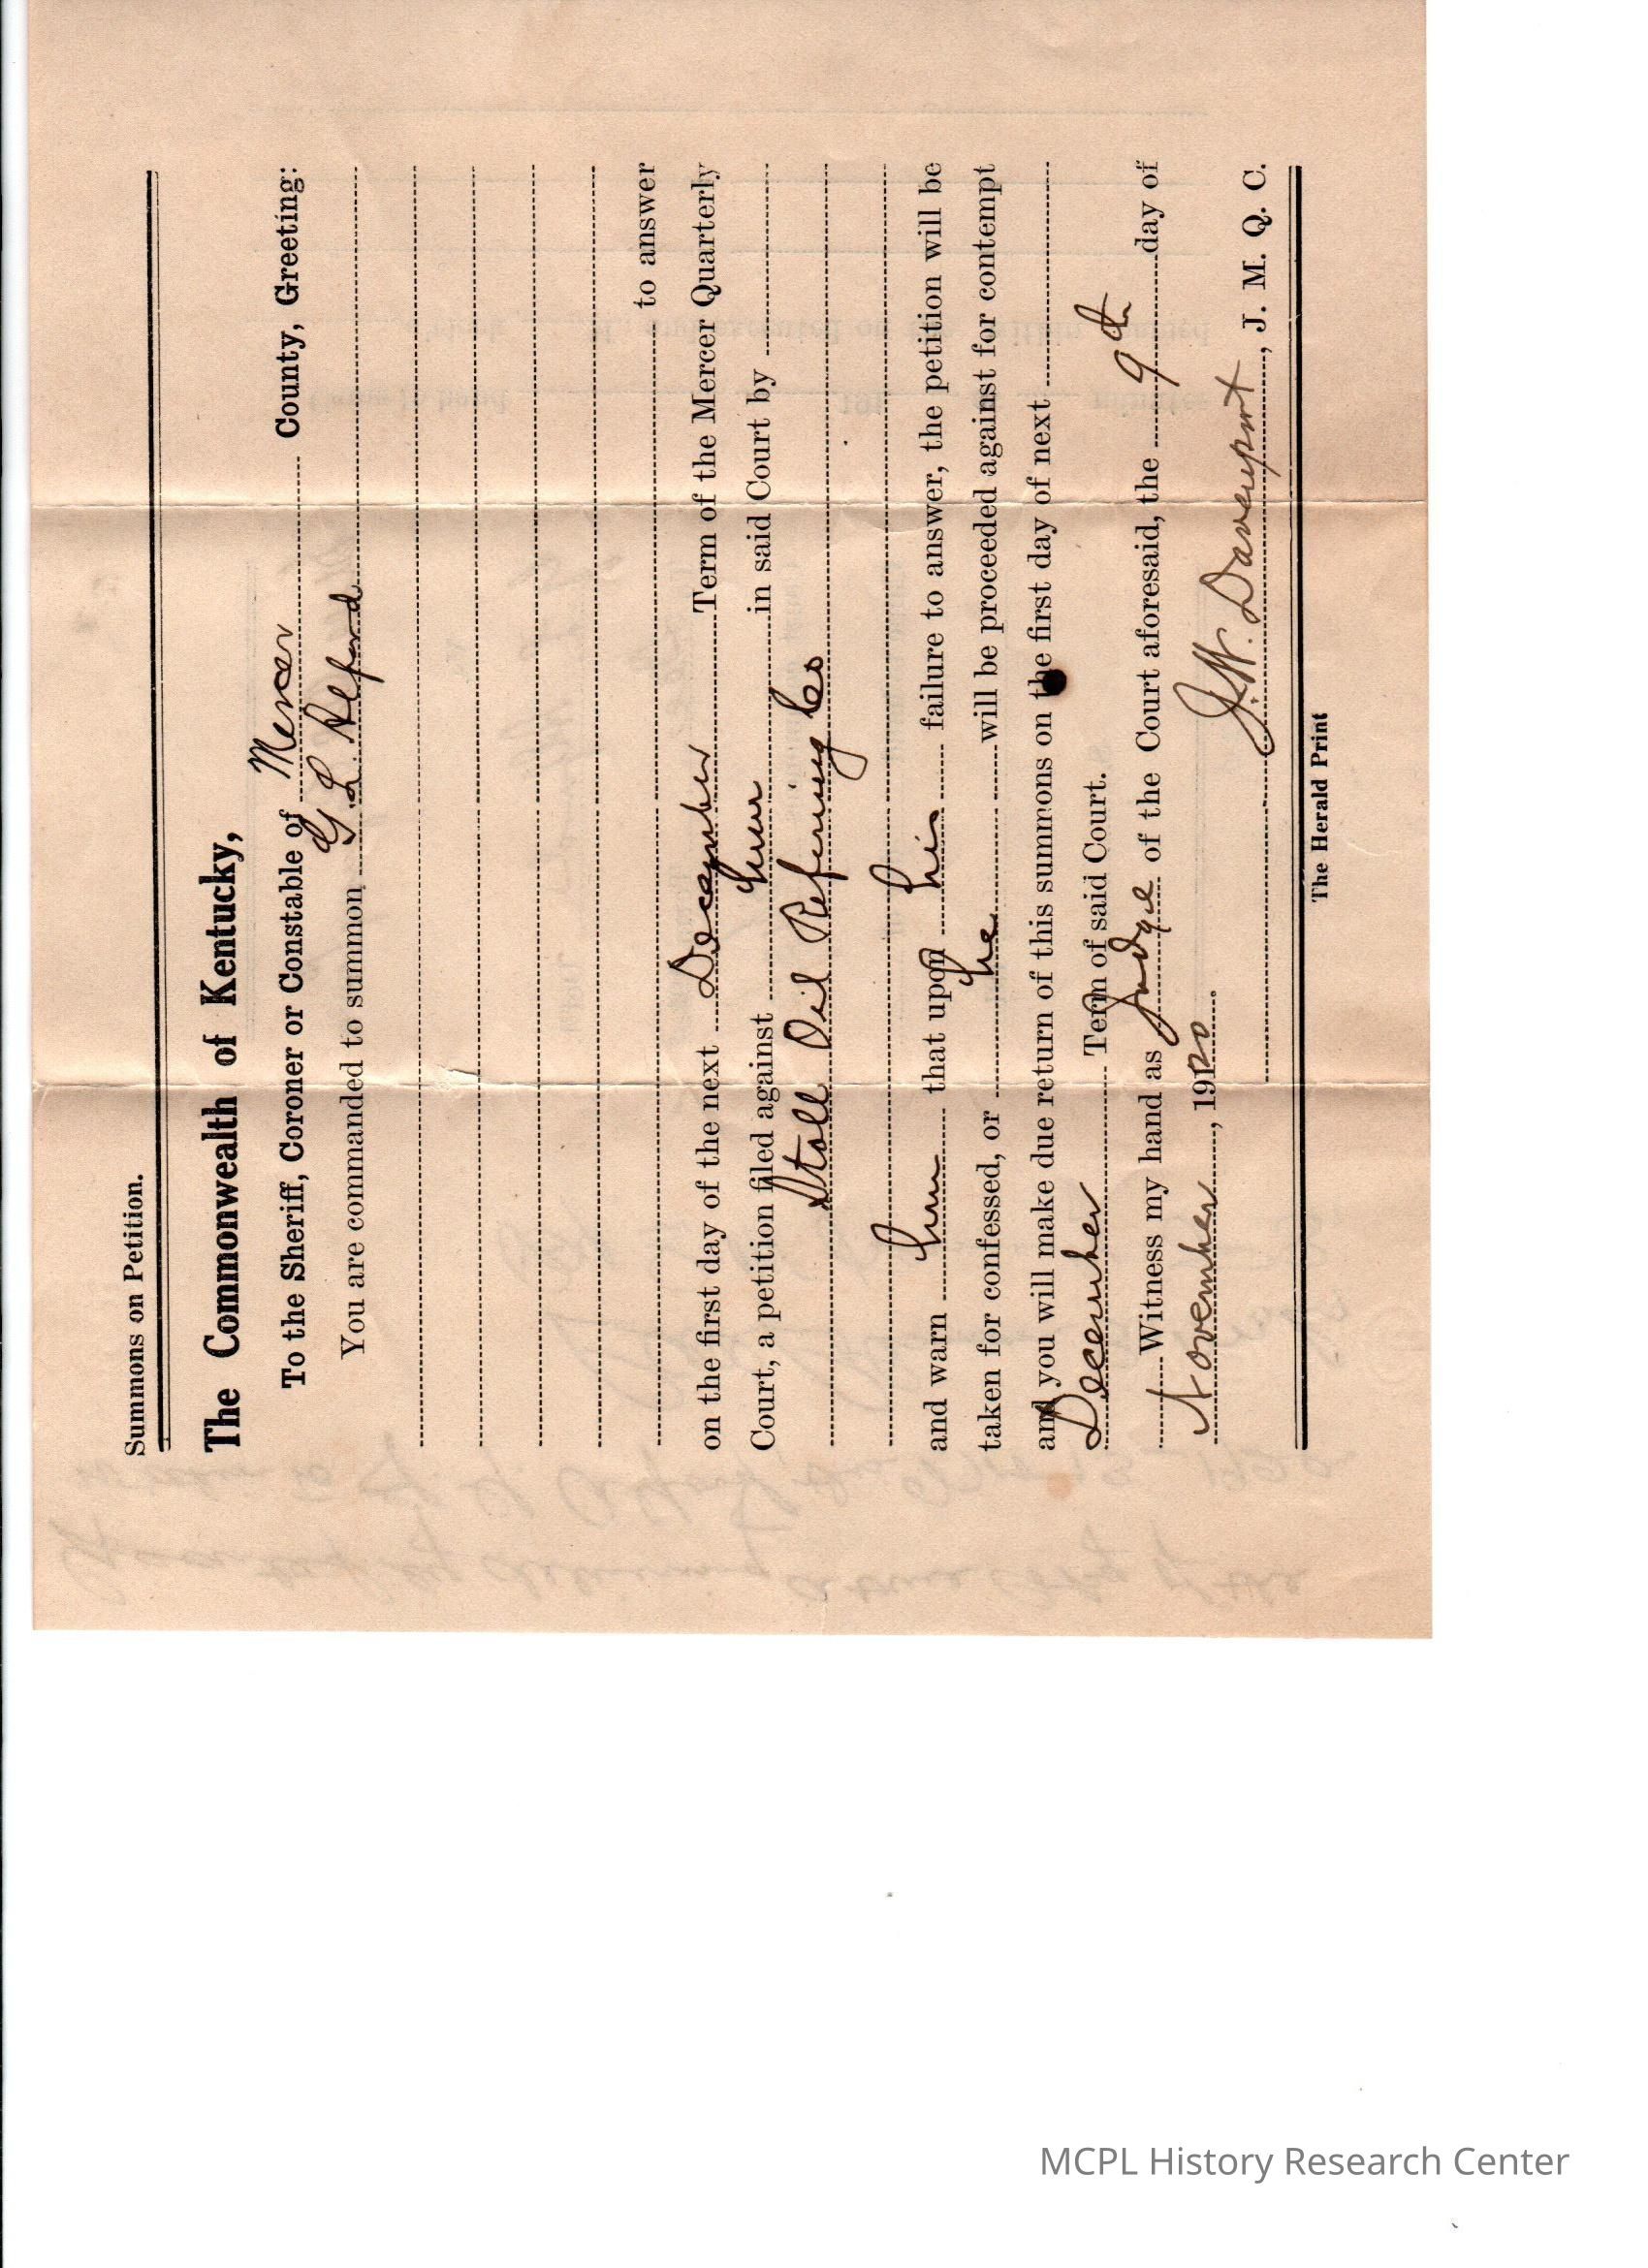 Summons on Petition.
The Commonwealth of Kentucky,
To the Sheriff, Coroner or Constable of Mercer County, Greeting:
You are commanded to summon G. L.
to answer
on the first day of the next December Term of the Mercer Quarterly
Court, a petition filed against him in said Court by
Stoll Oil Refining Co
and warn him that upon his failure to answer, the petition will be
taken for confessed, or he will be proceeded against for contempt
and you will make due return of this summons on the first day of next
December Term of said Court.
Witness my hand as Judge of the Court aforesaid, the 9th day of
November, 1920.
J. W. Davenport, J. M. Q. C.
The Herald Print
MCPL History Research Center